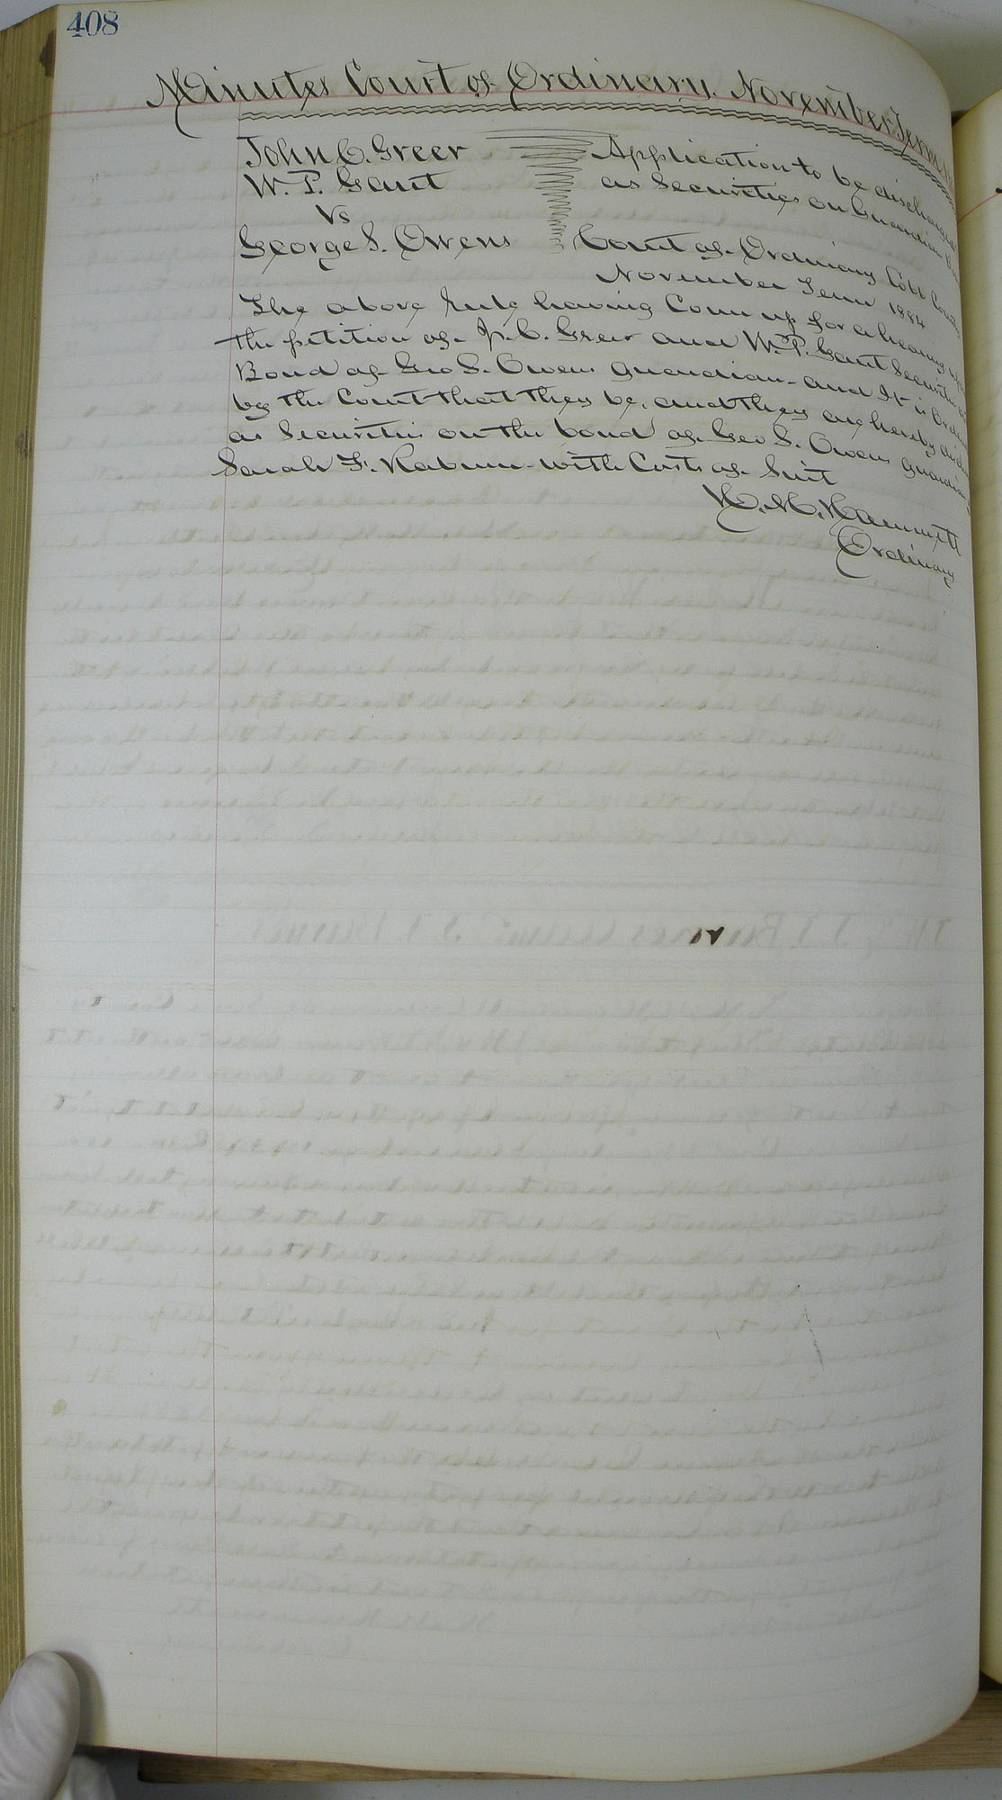 408
Minutes Court of Ordinary. November Term
John C. Greer
W. P. Gant
Vs
George S. Owens
Application to be discharged
as Securities on Guardian
Court of Ordinary Cobb County
November Term 1884
The above Rule having Come up for a hearing
the petition of J. C. Greer and W. P. Gant Securities
Bond of Geo S. Owens guardian - and It is
by the Court that they be, and they are hereby
as Securities on the bond of Geo S. Owens guardian
Sarah F. with Costs of Suit
H. M. Hammett
Ordinary